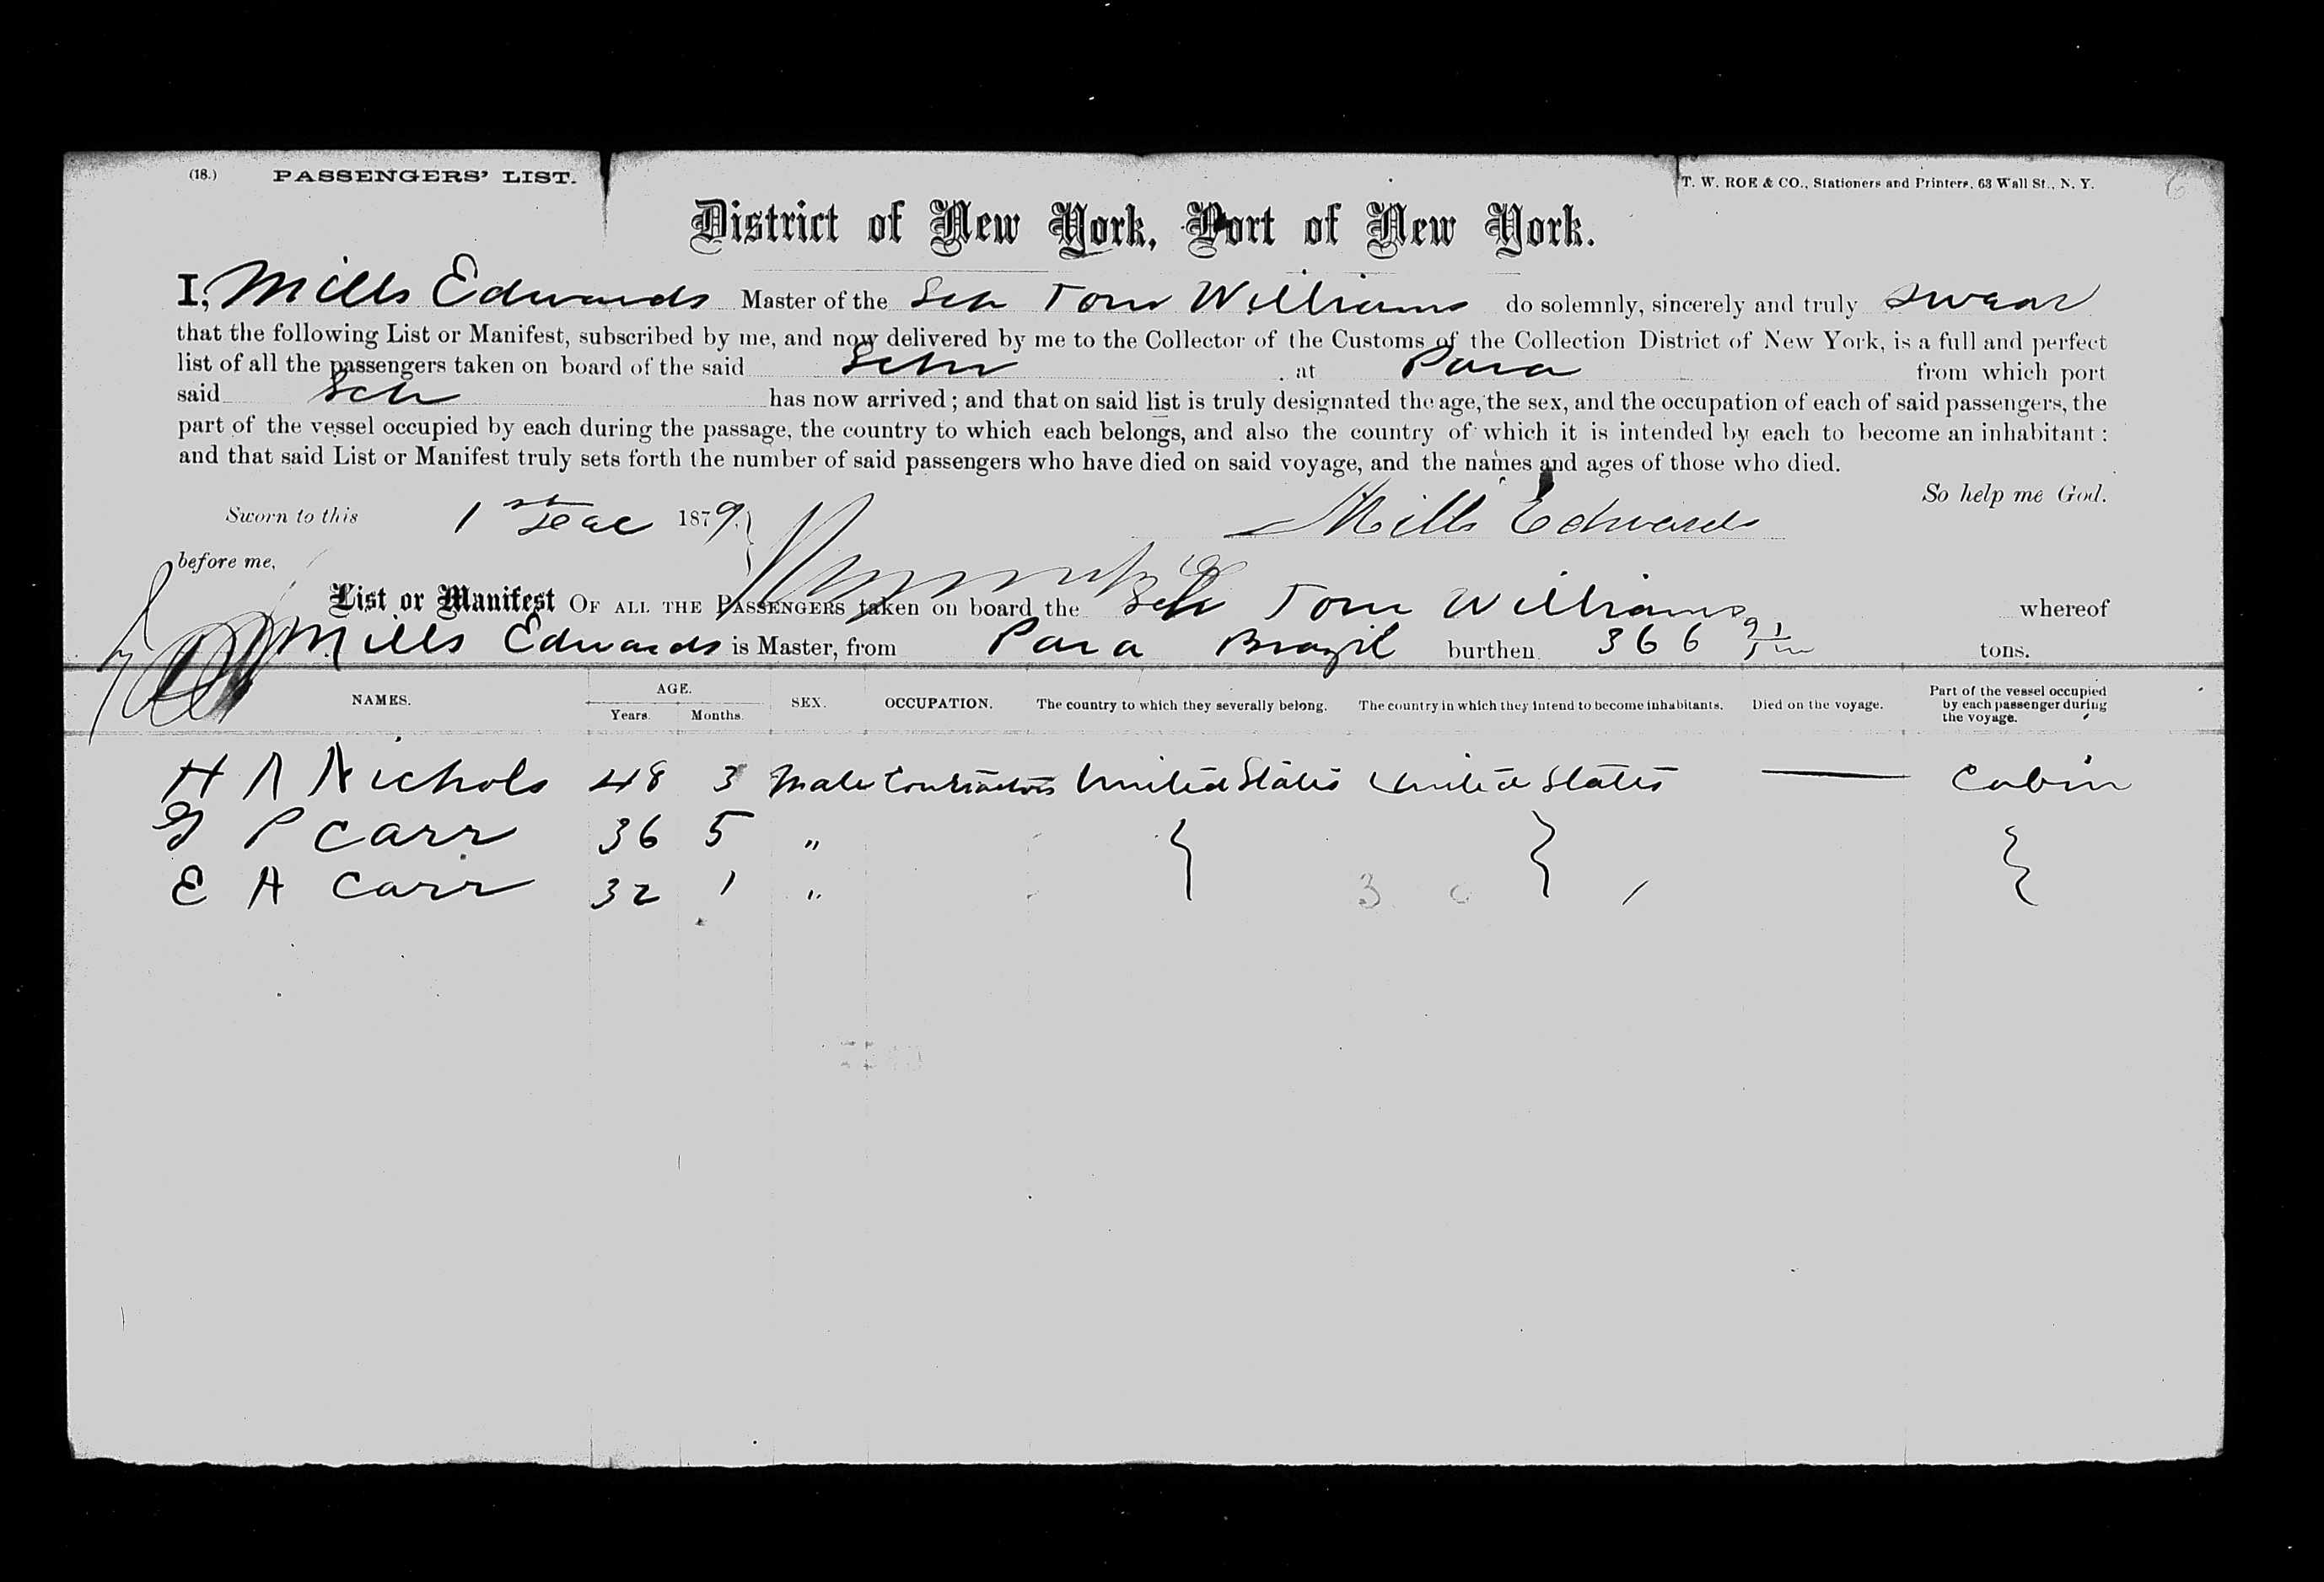 (18.) PASSENGERS' LIST.
T. W. ROE & CO., Stationers and Printers, 63 Wall St., N. Y.
District of New York, Port of New York.
I, Mills Edwards Master of the Sch Tom Williams do solemnly, sincerely and truly swear
that the following List or Manifest, subscribed by me, and now delivered by me to the Collector of the Customs of the Collection District of New York, is a full and perfect
list of all the passengers taken on board of the said Schr at Para from which port
said Sch has now arrived; and that on said list is truly designated the age, the sex, and the occupation of each of said passengers, the
part of the vessel occupied by each during the passage, the country to which each belongs, and also the country of which it is intended by each to become an inhabitant:
and that said List or Manifest truly sets forth the number of said passengers who have died on said voyage, and the names and ages of those who died.
So help me God.
Sworn to this 1st 1879. Mills Edwards
before me,
List or Manifest OF ALL THE PASSENGERS taken on board the Sch Tom Williams whereof
Mills Edwards is Master, from Para Brazil burthen 366 tons.
NAMES. AGE. Years. Months. SEX. OCCUPATION. The country to which they severally belong. The country in which they intend to become inhabitants. Died on the voyage. Part of the vessel occupied by each passenger during the voyage.
H A Nichols 48 3 Male Contractors United States United States — Cabin
G P Carr 36 5 "
E A Carr 32 1 "